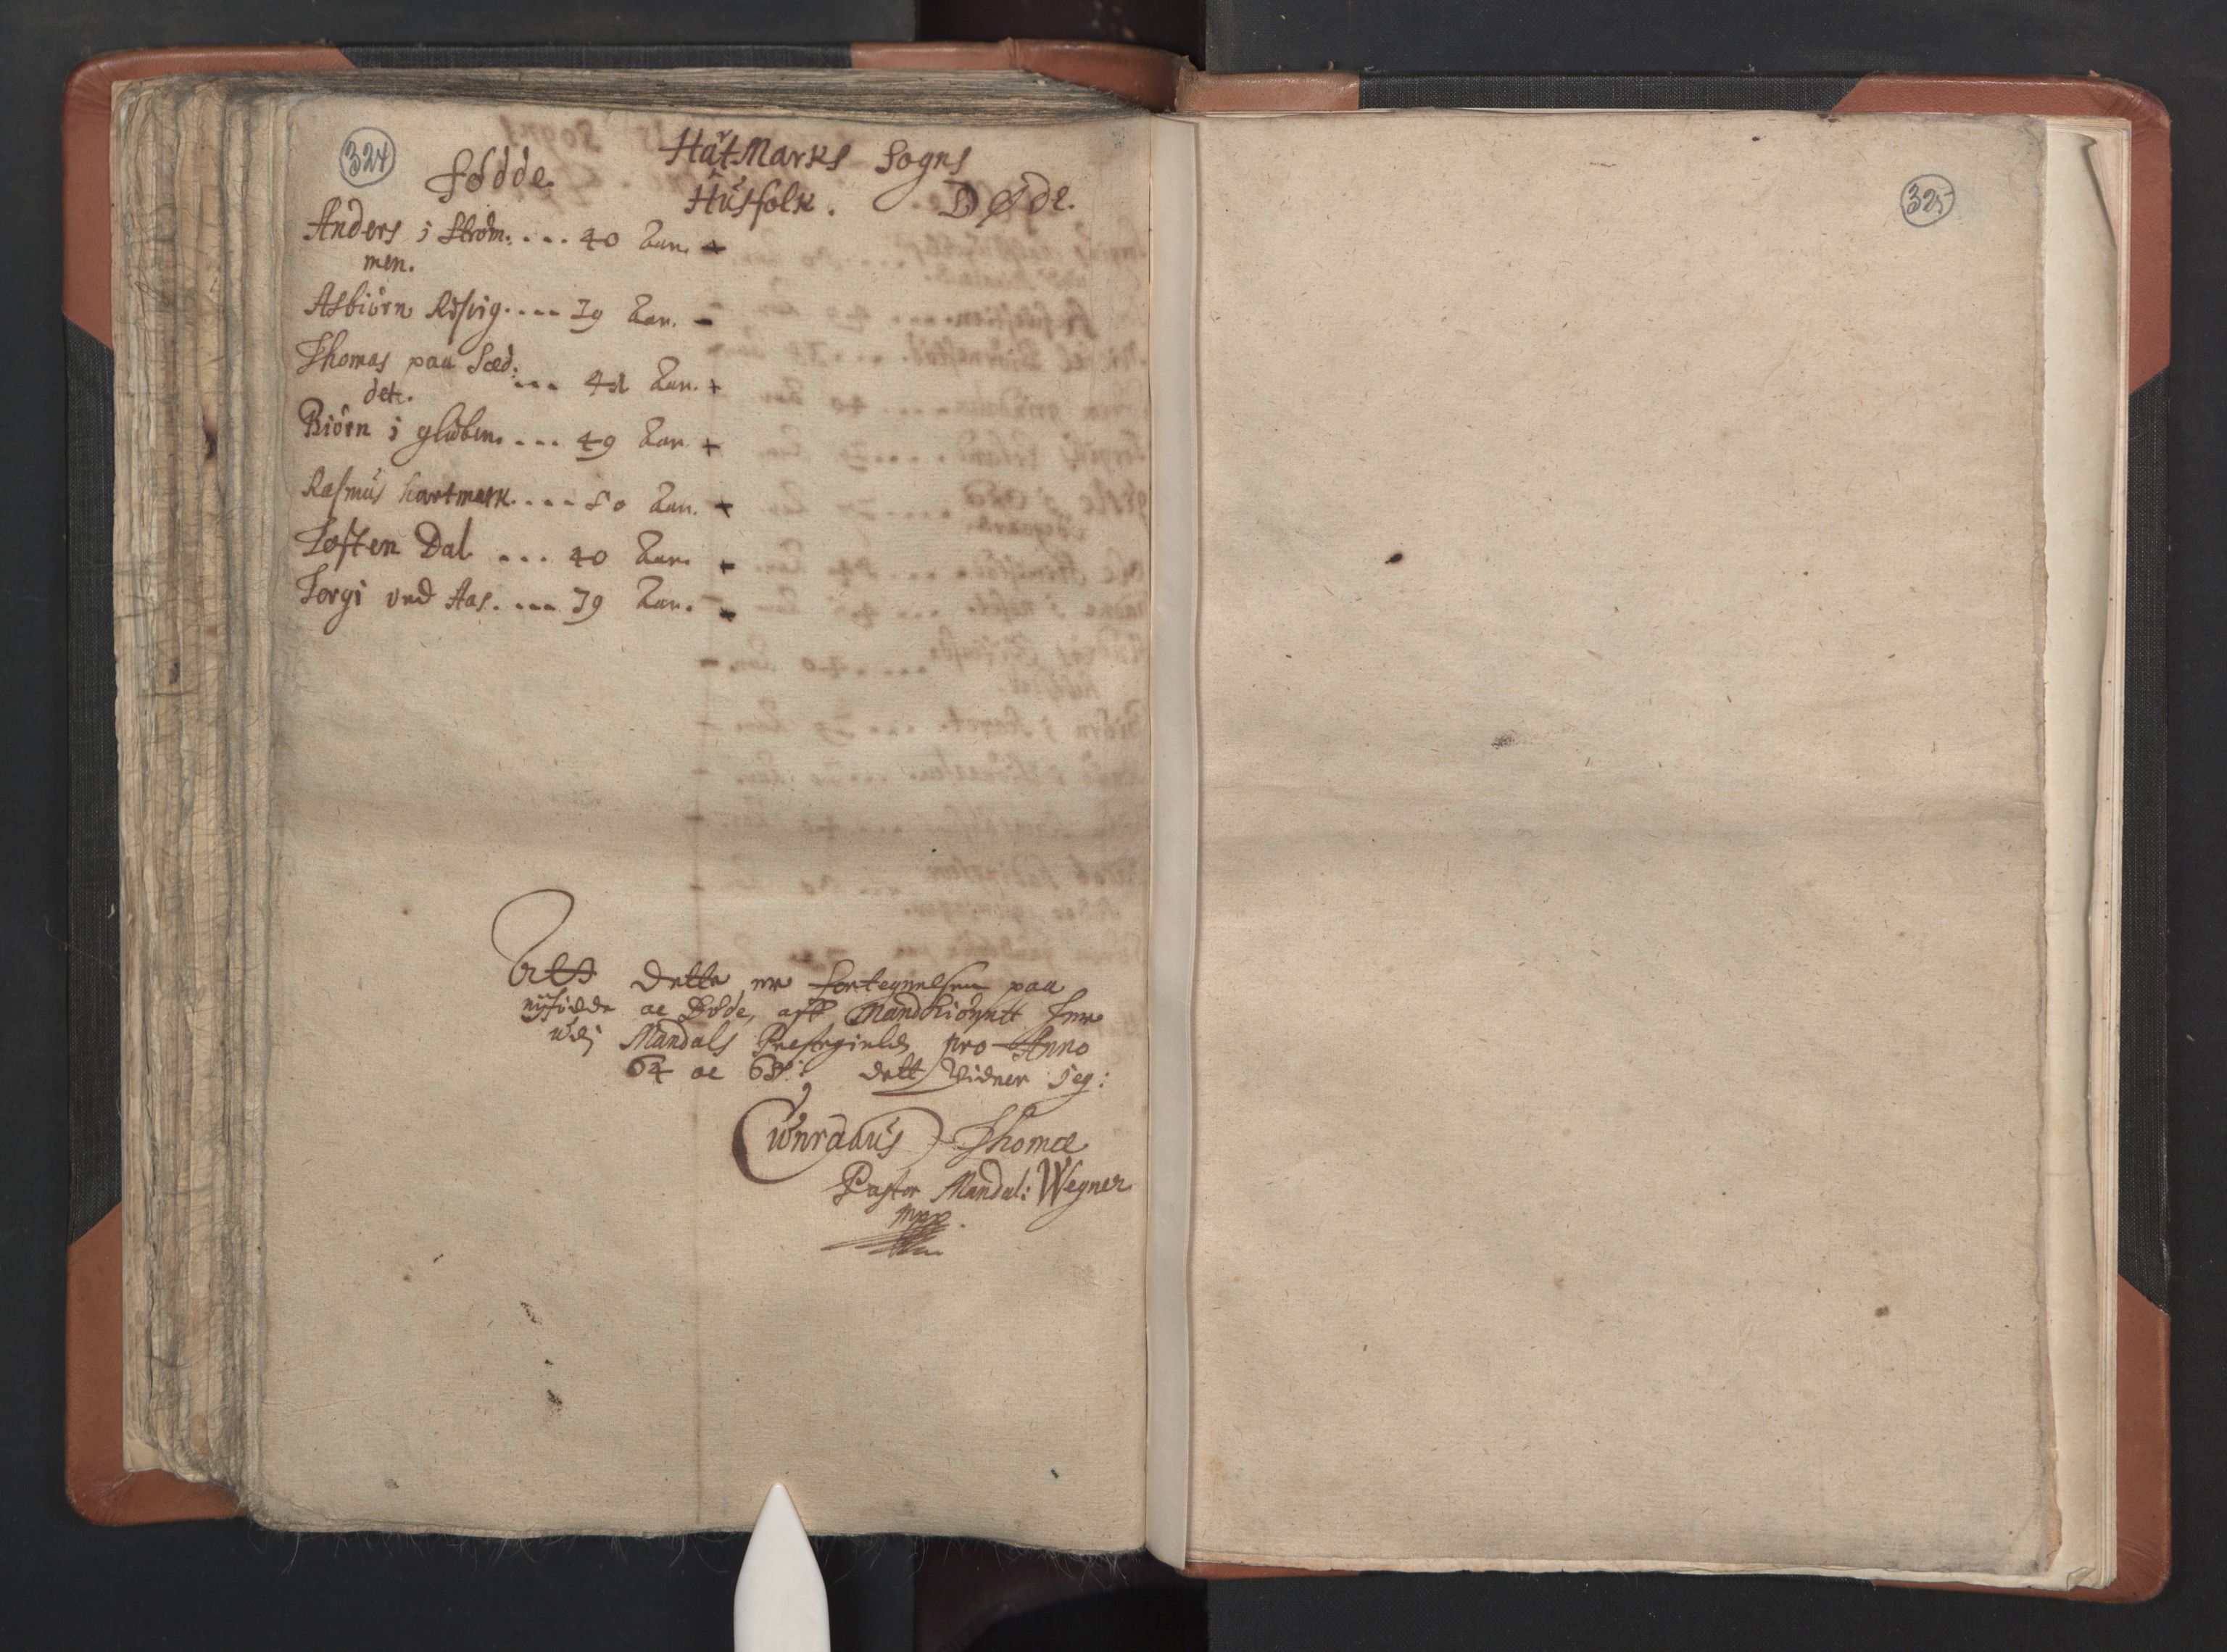 324
HatMarks Sogns
födde.
Hüsfolk.
Døde.
Anders i Ström: ... 40 Aar. +
men.
Asbiörn Risvig .... 39 Aar. -
Thomas paa Sæd: ... 41 Aar. +
det.
Biörn i globen. ... 49 Aar +
Rasmüs hartmark .... 50 Aar. +
Tosten Dal ... 40 Aar. +
Torgi ved Aas. ... 39 Aar. -
Att dette er fortegnelsen paa
nyfödde oc Döde, aff Mandkiönit her
udi Mandals Prestegield, pro Anno
64 oc 65: dett vidner ieg:
Cünradus Thomæ
Pastor Mandal: Wegner
mpp.
325